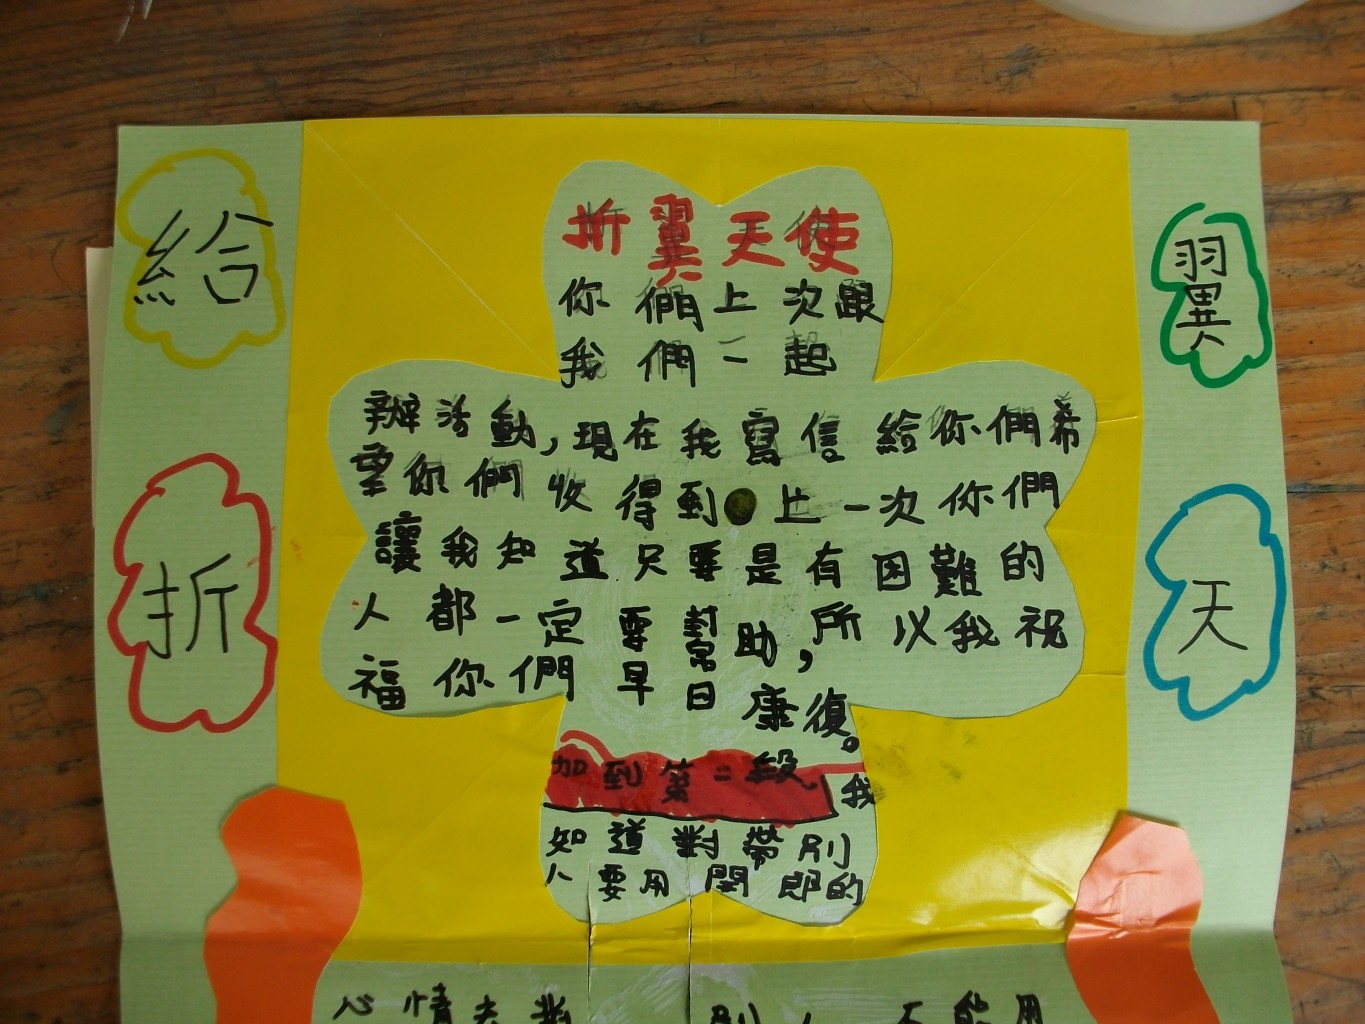 給
折
翼
天
折翼天使
你們上次跟
我們一起
辦活動,現在我寫信給你們希
望你們收得到 上一次你們
讓我知道只要是有困難的
人都一定要幫助,所以我祝
福你們早日康復。
加到第二段 我
知道對帶別
人要用開郎的
心情去對 別人 不能用